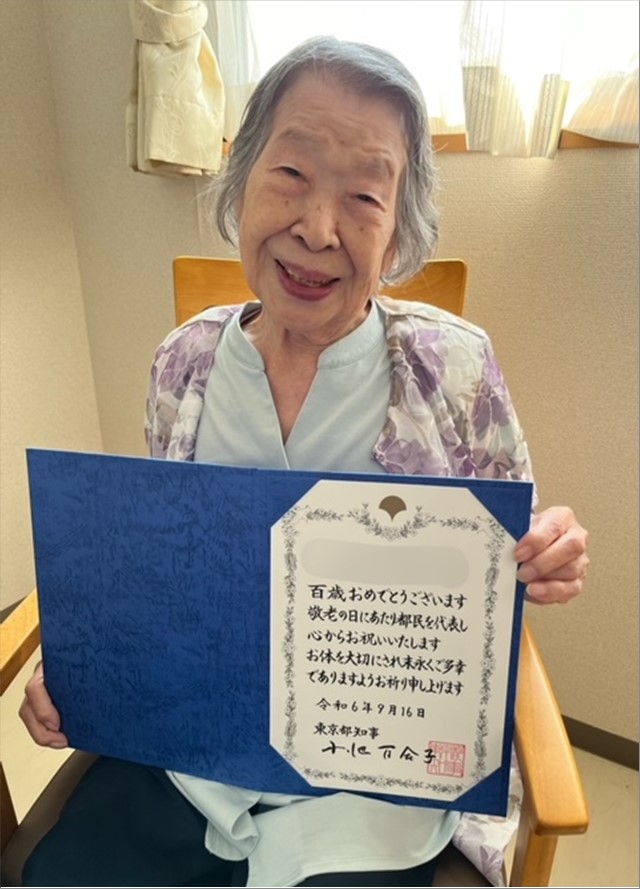 百歳おめでとうございます
敬老の日にあたり都民を代表し
心からお祝いいたします
お体を大切にされ末永くご多幸
でありますようお祈り申し上げます
令和6年9月16日
東京都知事
小池百合子